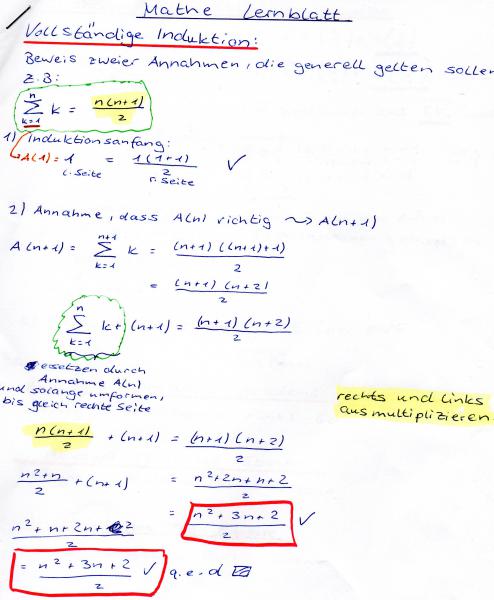 Mathe Lernblatt
Vollständige Induktion:
Beweis zweier Annahmen, die generell gelten sollen
z.B:
n∑k=1 k = n(n+1)/2
1) Induktionsanfang:
A(1) = 1 = 1(1+1)/2 ✓
l. Seite r. Seite
2) Annahme, dass A(n) richtig ⤳ A(n+1)
A(n+1) = n+1∑k=1 k = (n+1)((n+1)+1)/2
= (n+1)(n+2)/2
n∑k=1 k + (n+1) = (n+1)(n+2)/2
ersetzen durch
Annahme A(n)
und solange umformen,
bis gleich rechte Seite
rechts und links
ausmultiplizieren.
n(n+1)/2 + (n+1) = (n+1)(n+2)/2
n²+n/2 + (n+1) = n²+2n+n+2/2
= n²+3n+2/2 ✓
n²+n+2n+2/2
= n²+3n+2/2 ✓ q.e.d